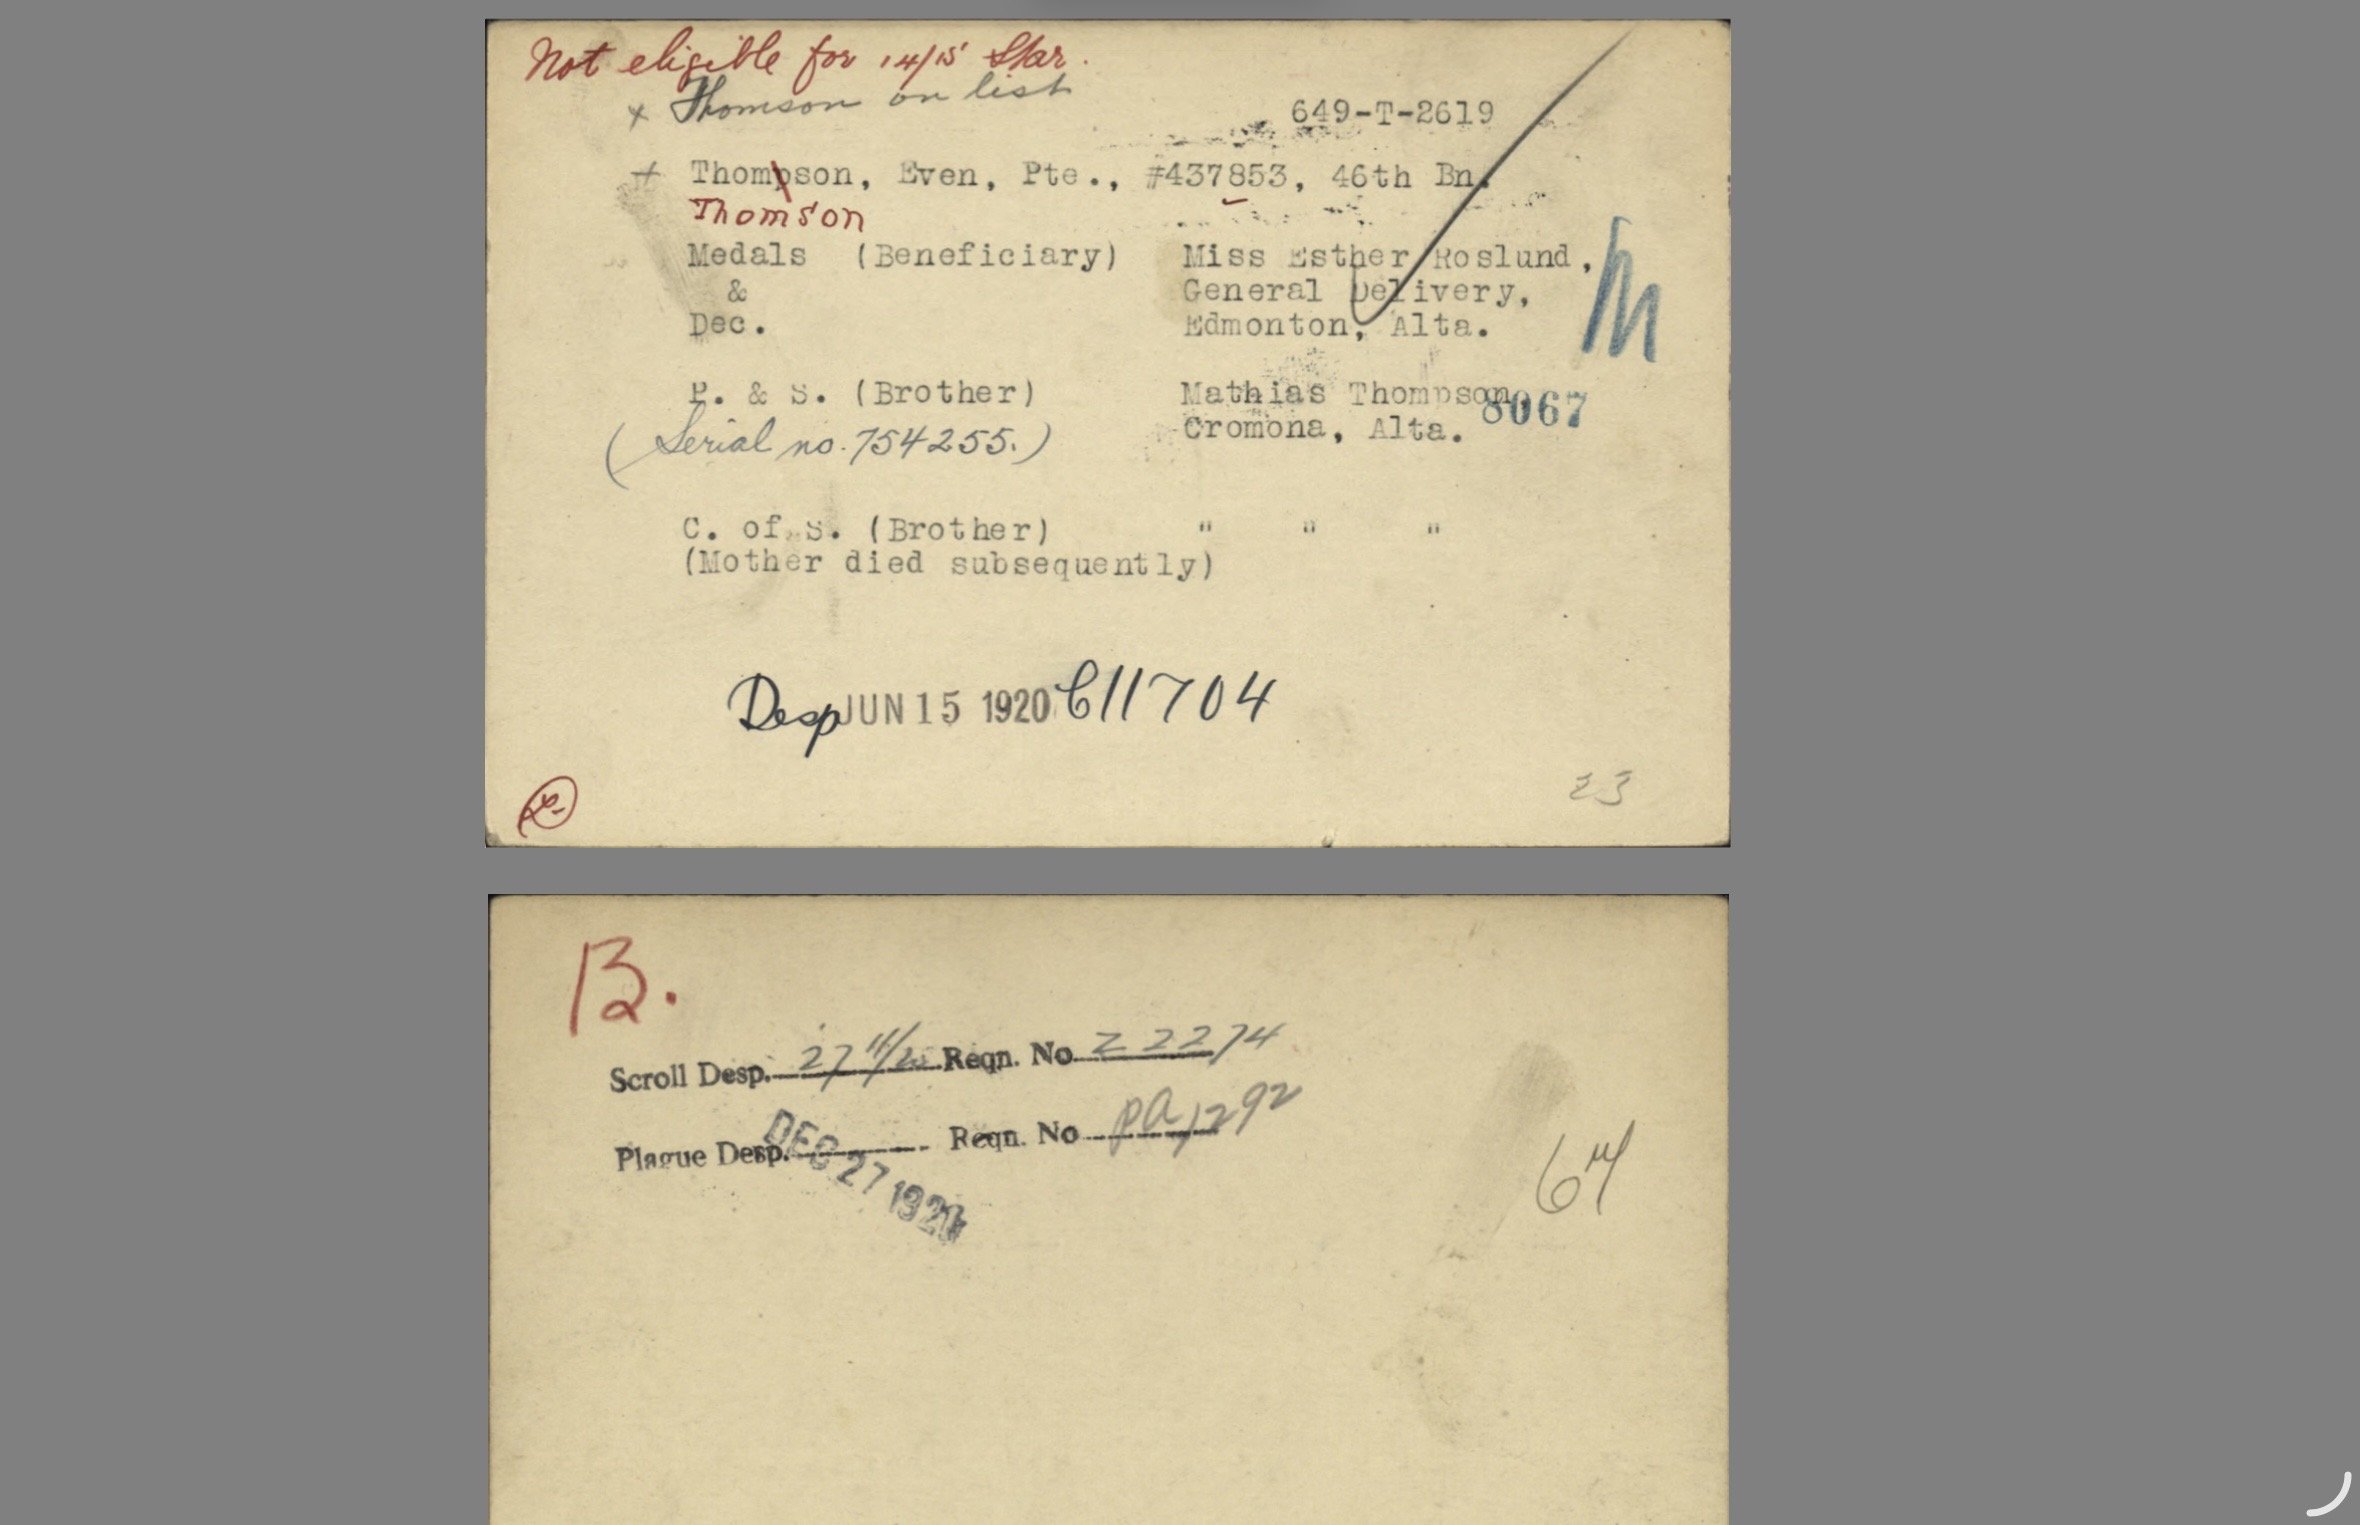 Not eligible for 14/15 Star.
x Thomson on list
649-T-2619
+ Thompson, Even, Pte., #437853, 46th Bn.
Thomson
Medals (Beneficiary) Miss Esther Roslund,
& General Delivery,
Dec. Edmonton, Alta.
M
P. & S. (Brother) Mathias Thompson,
8067
(Serial no. 754255.) Cromona, Alta.
C. of S. (Brother) " " "
(Mother died subsequently)
Desp JUN 15 1920 C11704
23
B.
Scroll Desp. 27 11/20 Reqn. No Z 2274
Plague Desp. DEC 27 1921 Reqn. No PA 1292